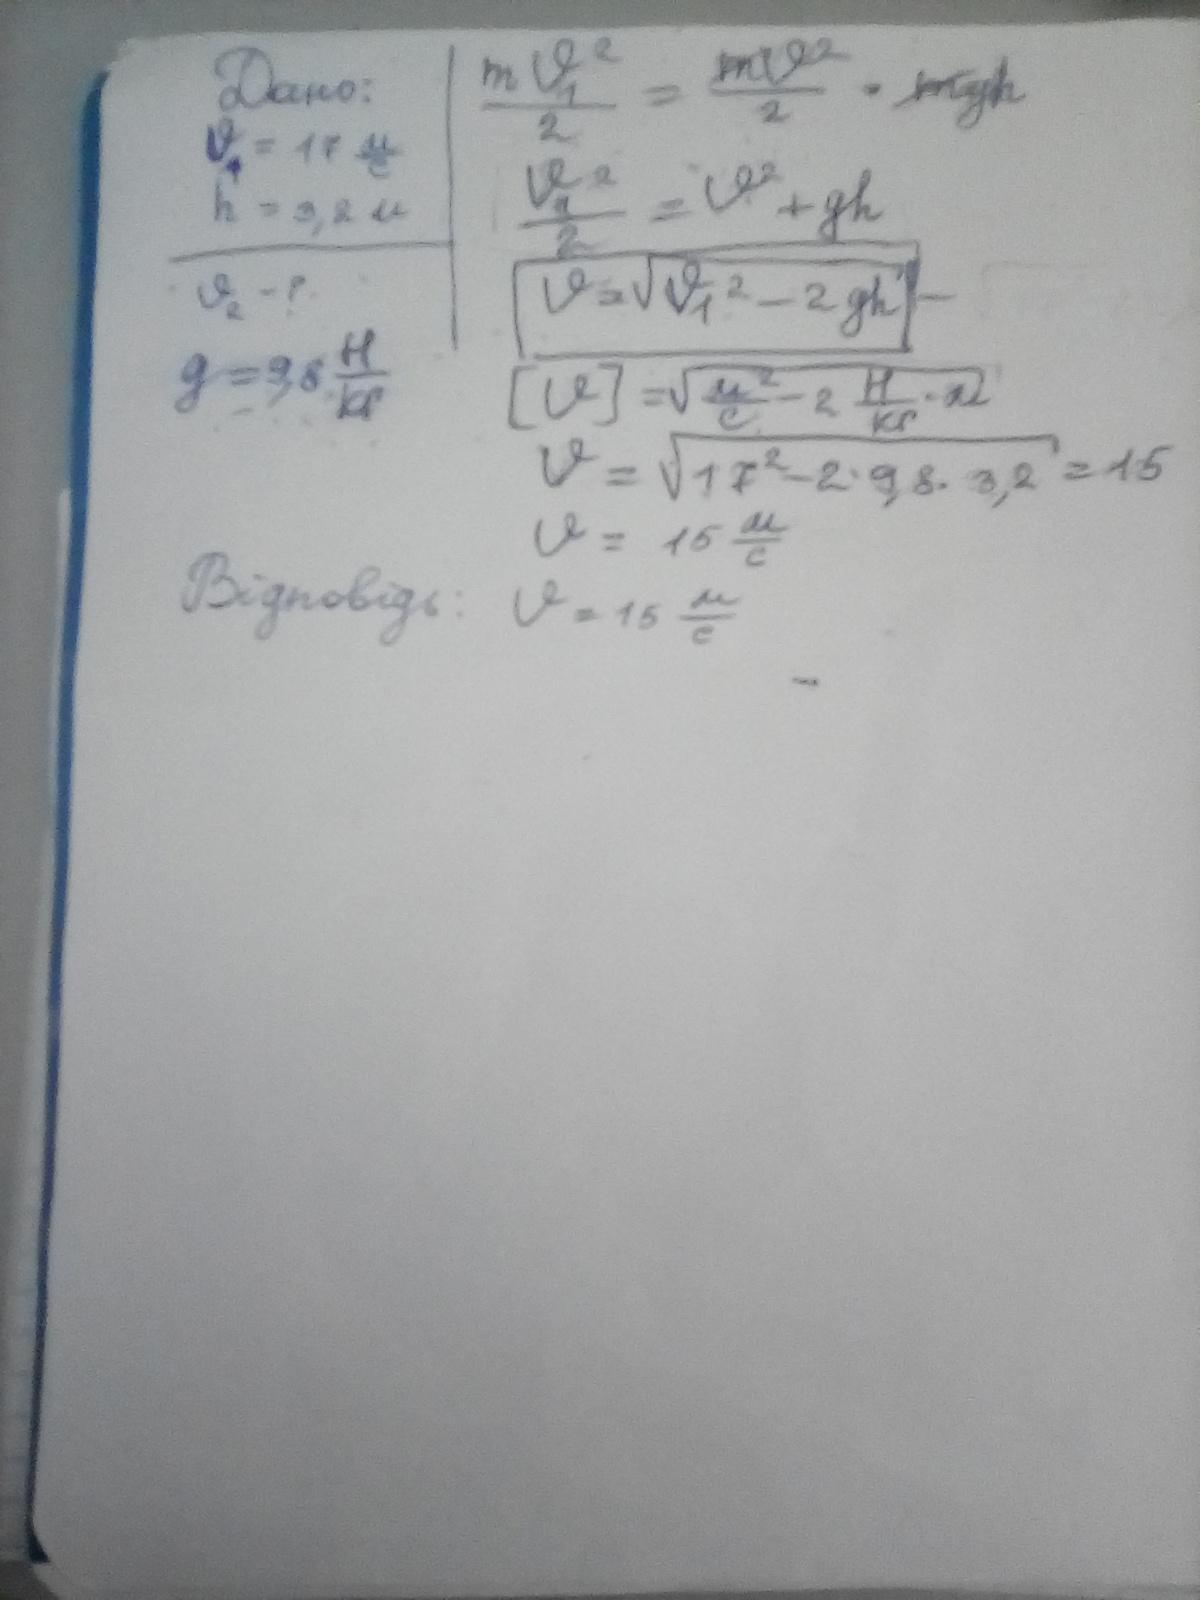 Дано:
υ₁ = 17 м/с
h = 3,2 м
υ₂ - ?
g = 9,8 Н/кг
mυ₁²/2 = mυ²/2 · mgh
υ₁²/2 = υ² + gh
υ = √(υ₁² - 2gh) -
[υ] = √(м²/с - 2 Н/кг · м)
υ = √(17² - 2 · 9,8 · 3,2) = 15
υ = 15 м/с
Відповідь: υ = 15 м/с